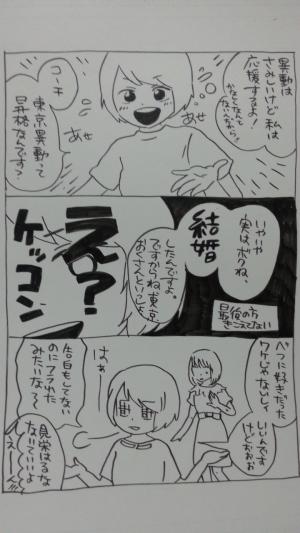 異動は
さみしいけど私は
応援するよ!
かなしくなんて
ないんだから!
あせ
あせ
コーチ
東京異動って
昇格なんです?
いやいや
実はボクね、
結婚
したんですよ。
ですからね東京
おくさんといっしょ
最後の方
きこえてない
えっ?
ケッコン
べつに好きだった
ワケじゃないしィ
いいんです
けどぉぉぉ
はぁー
告白もしてない
のにフラれた
みたいなる〜
見栄はるな
ないていいよ
うえーん!!!